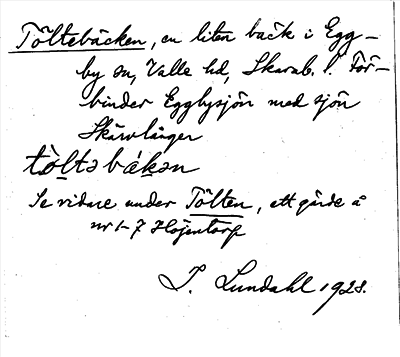 Töltebäcken, en liten bäck i Egg-
by sn, Valle hd, Skarab. l. För-
binder Eggbysjön med sjön
Skärvlången
tòltəbákən
Se vidare under Tölten, ett gärde å
nr 1-7 Höjentorp
I. Lundahl 1928.